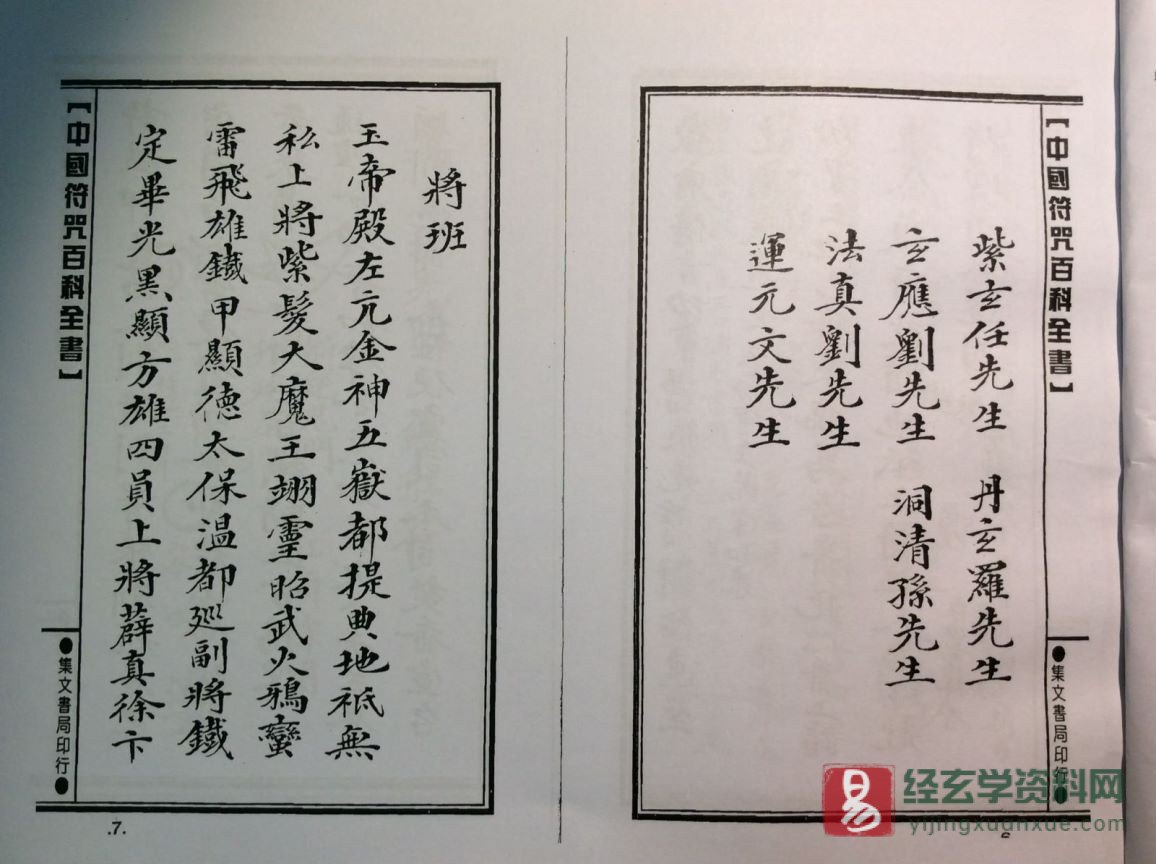 【中國符咒百科全書】
紫玄任先生 丹玄羅先生
玄應劉先生 洞清孫先生
法真劉先生
運元文先生
●集文書局印行●
將班
玉帝殿左亢金神五嶽都提典地祇無
私上將紫髮大魔王翊靈昭武火鴉蠻
雷飛雄鐵甲顯德太保溫都巡副將鐵
定畢光黑顯方雄四員上將薜真徐卞
【中國符咒百科全書】
●集文書局印行●
.7.
易
经玄学资料网
yijingxuanxue.com